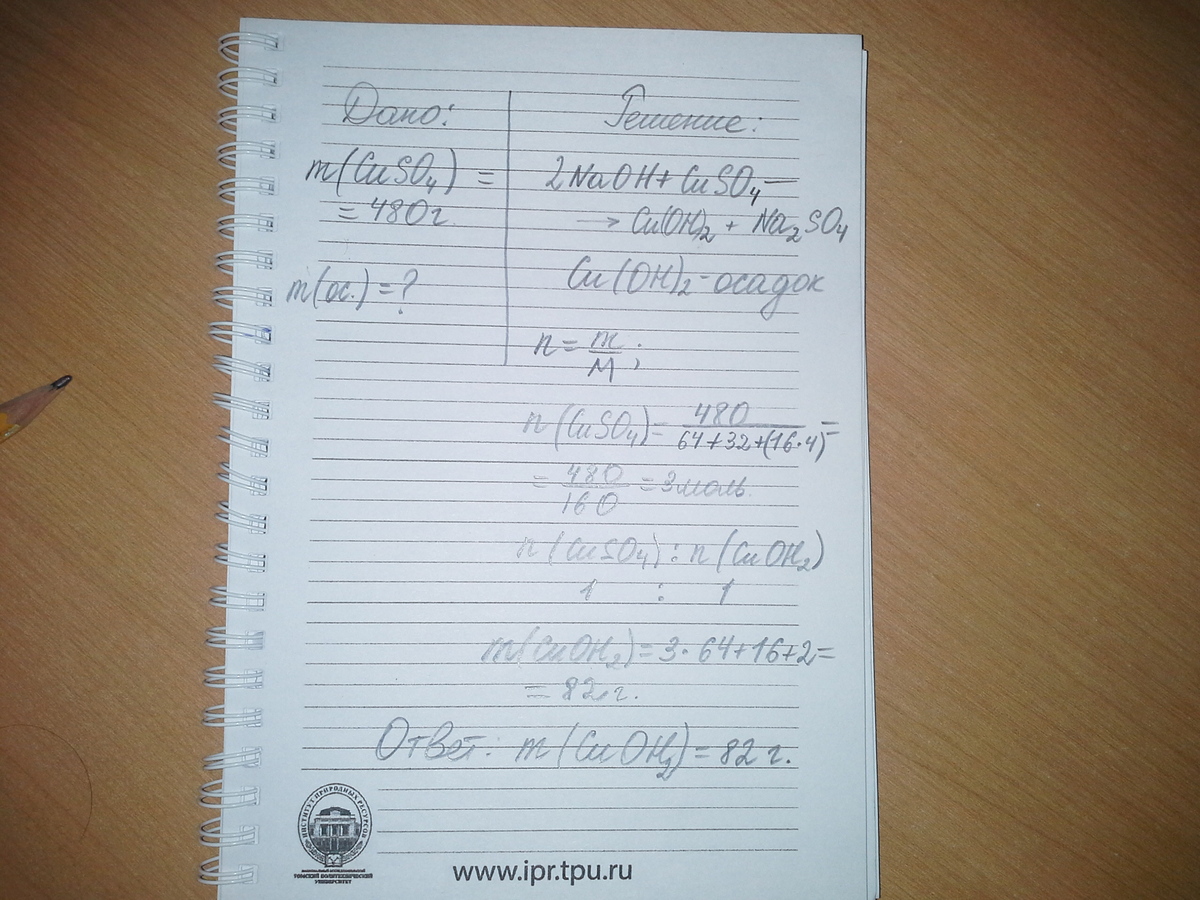 Дано:
Решение:
m(CuSO4) =
= 480г.
m(ос.) = ?
2NaOH + CuSO4 —
→ Cu(OH)2 + Na2SO4
Cu(OH)2 - осадок
n = m/M ;
n(CuSO4) = 480/64+32+(16·4) =
= 480/160 = 3 моль.
n(CuSO4) : n(CuOH2)
1 : 1
m(CuOH2) = 3·64+16+2=
= 82 г.
Ответ: m(CuOH2) = 82 г.
ИНСТИТУТ ПРИРОДНЫХ РЕСУРСОВ
ТОМСКИЙ ПОЛИТЕХНИЧЕСКИЙ
УНИВЕРСИТЕТ
www.ipr.tpu.ru